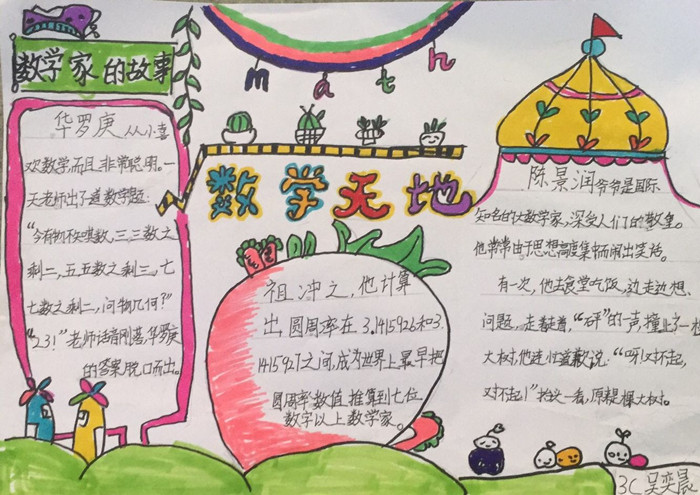 数学家的故事
math
数学天地
华罗庚从小喜
欢数学,而且非常聪明。一
天老师出了道数学题:
“今有物不知其数,三三数之
剩二,五五数之剩三,七
七数之剩二,问物几何?”
“23!”老师话音刚落,华罗庚
的答案脱口而出。
祖冲之,他计算
出,圆周率在3.1415926和3.
1415927之间,成为世界上最早把
圆周率数值推算到七位
数字以上数学家。
陈景润爷爷是国际
知名的大数学家,深受人们的敬重。
他常常由于思想高度集中而闹出笑话。
有一次,他去食堂吃饭,边走边想
问题,走着走着,“砰”的一声,撞上了一棵
大树,他连忙道歉说:“呀!对不起,
对不起!”抬头一看,原来是棵大树。
3C吴奕晨